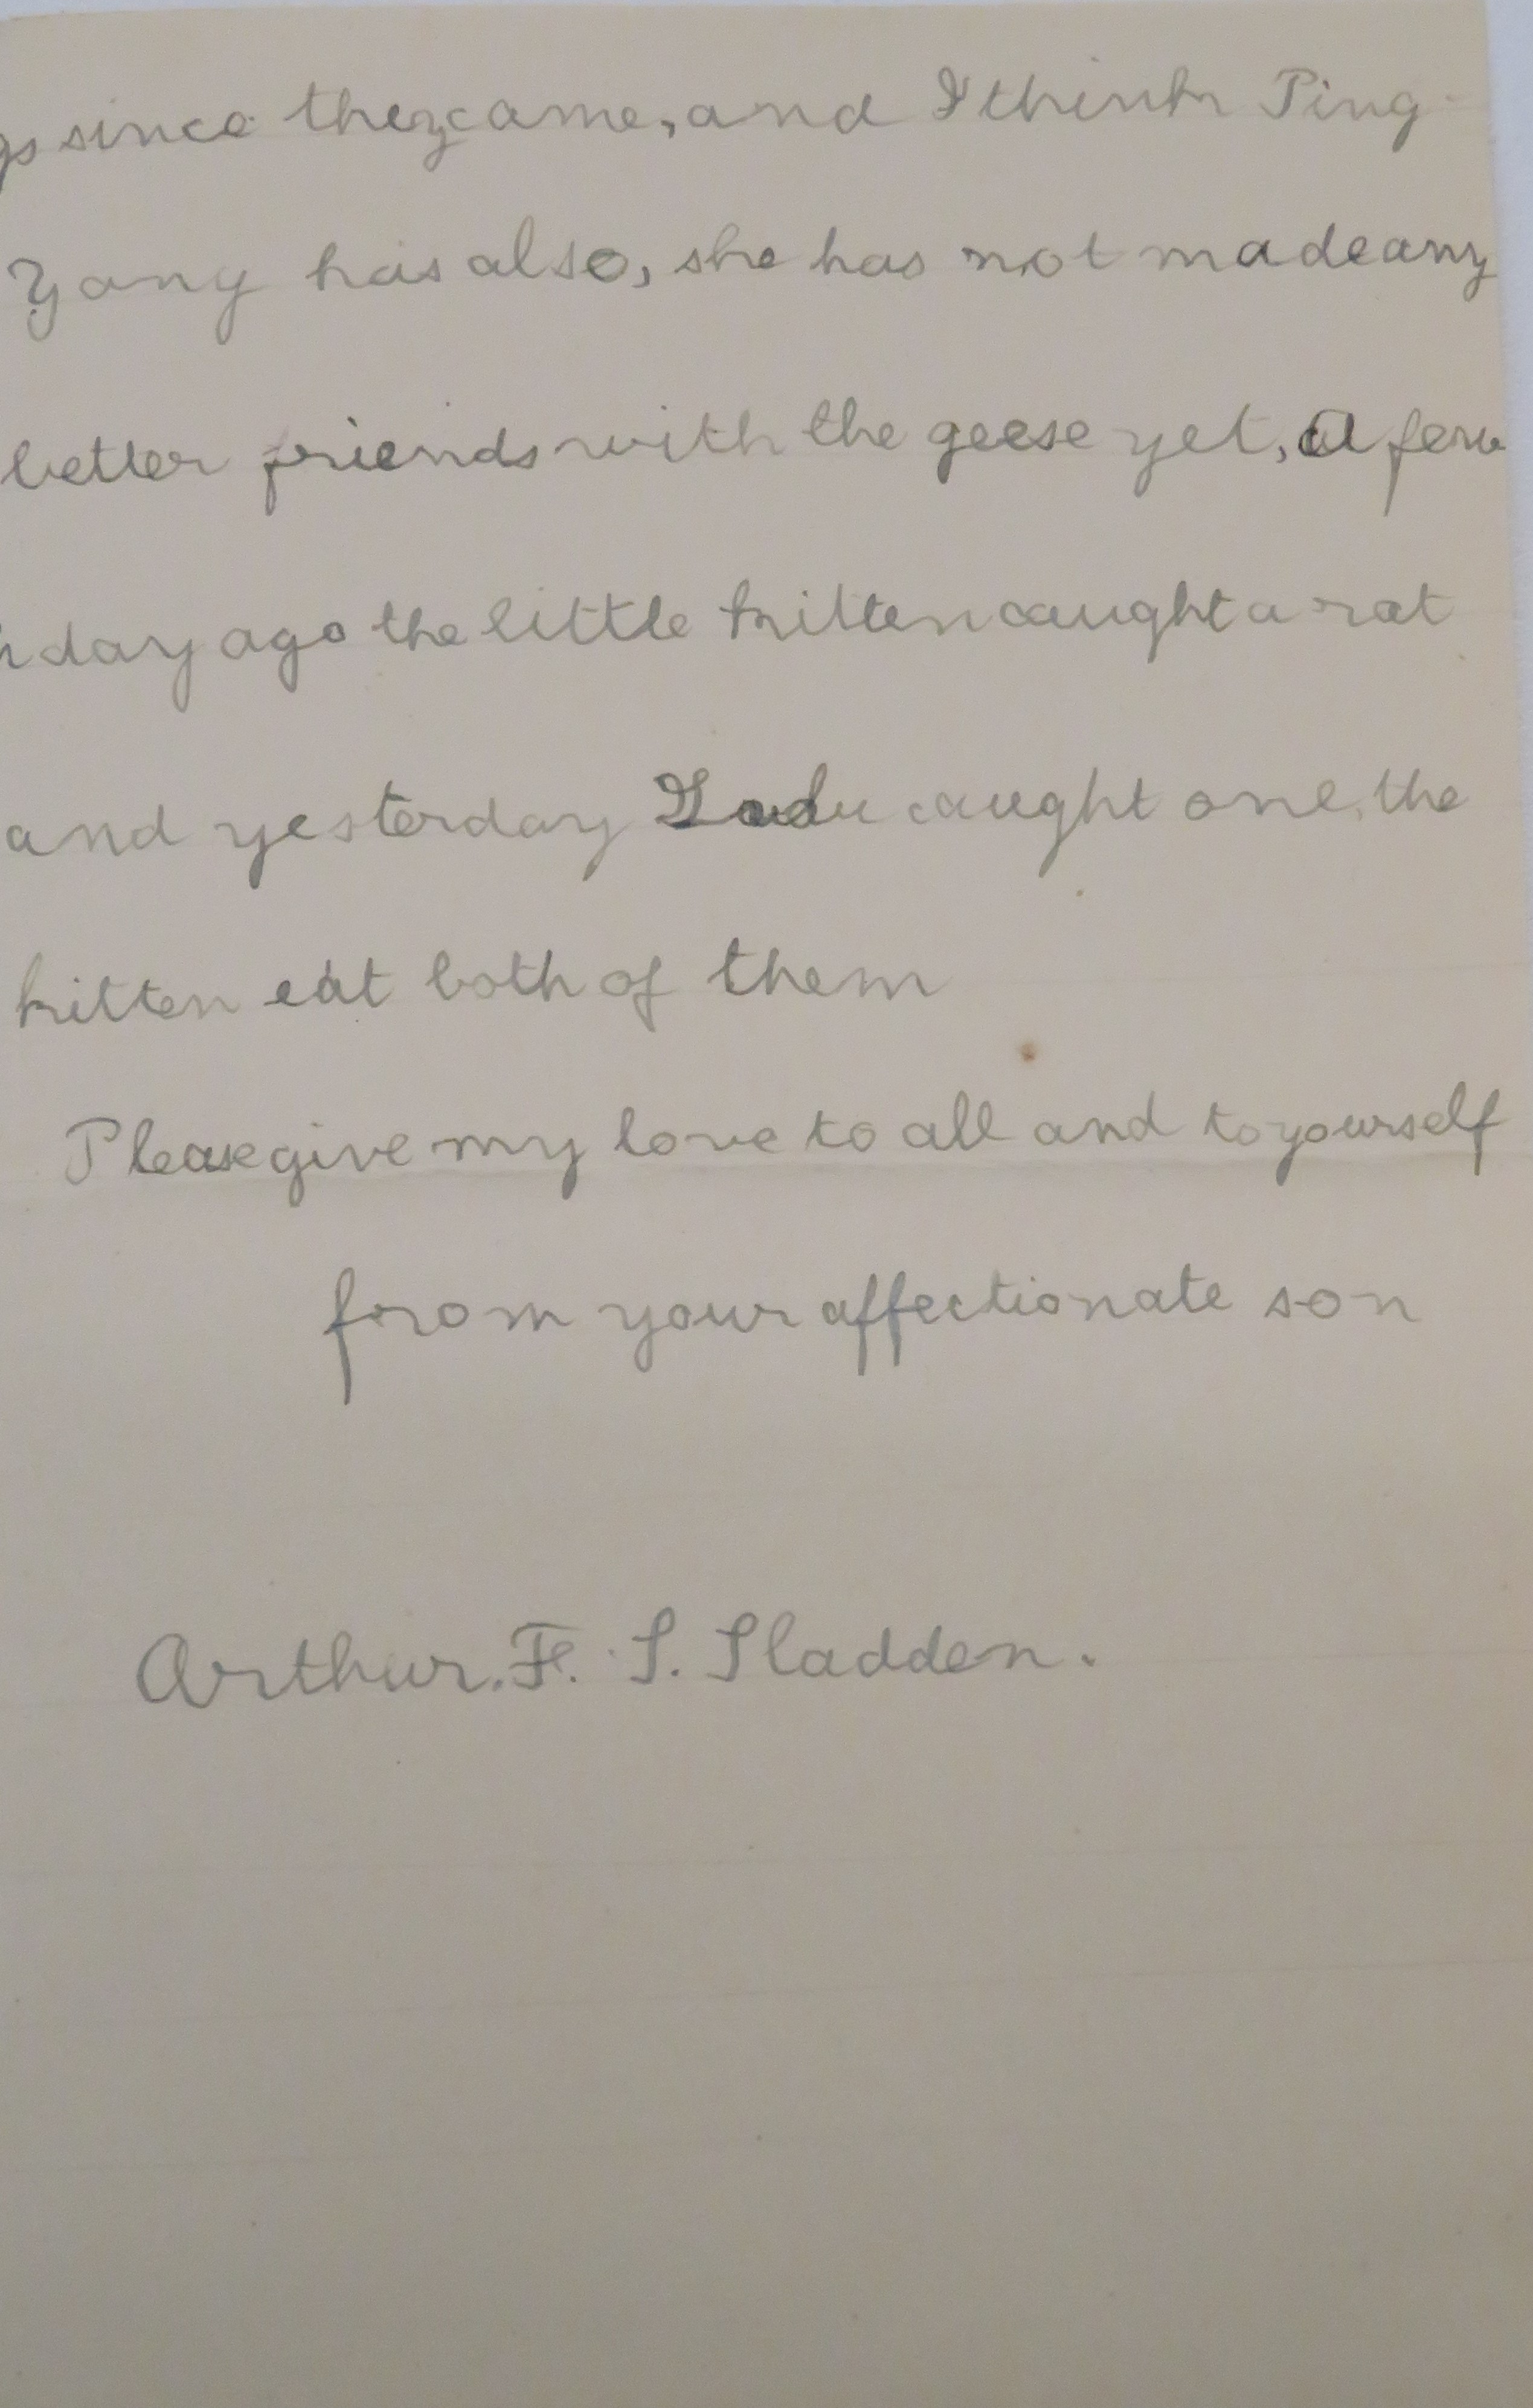 since they came, and I think Ping-
Yang has also, she has not made any
better friends with the geese yet, A few
day ago the little kitten caught a rat
and yesterday caught one, the
kitten eat both of them
Please give my love to all and to yourself
from your affectionate son
Arthur. F. S. Sladden.